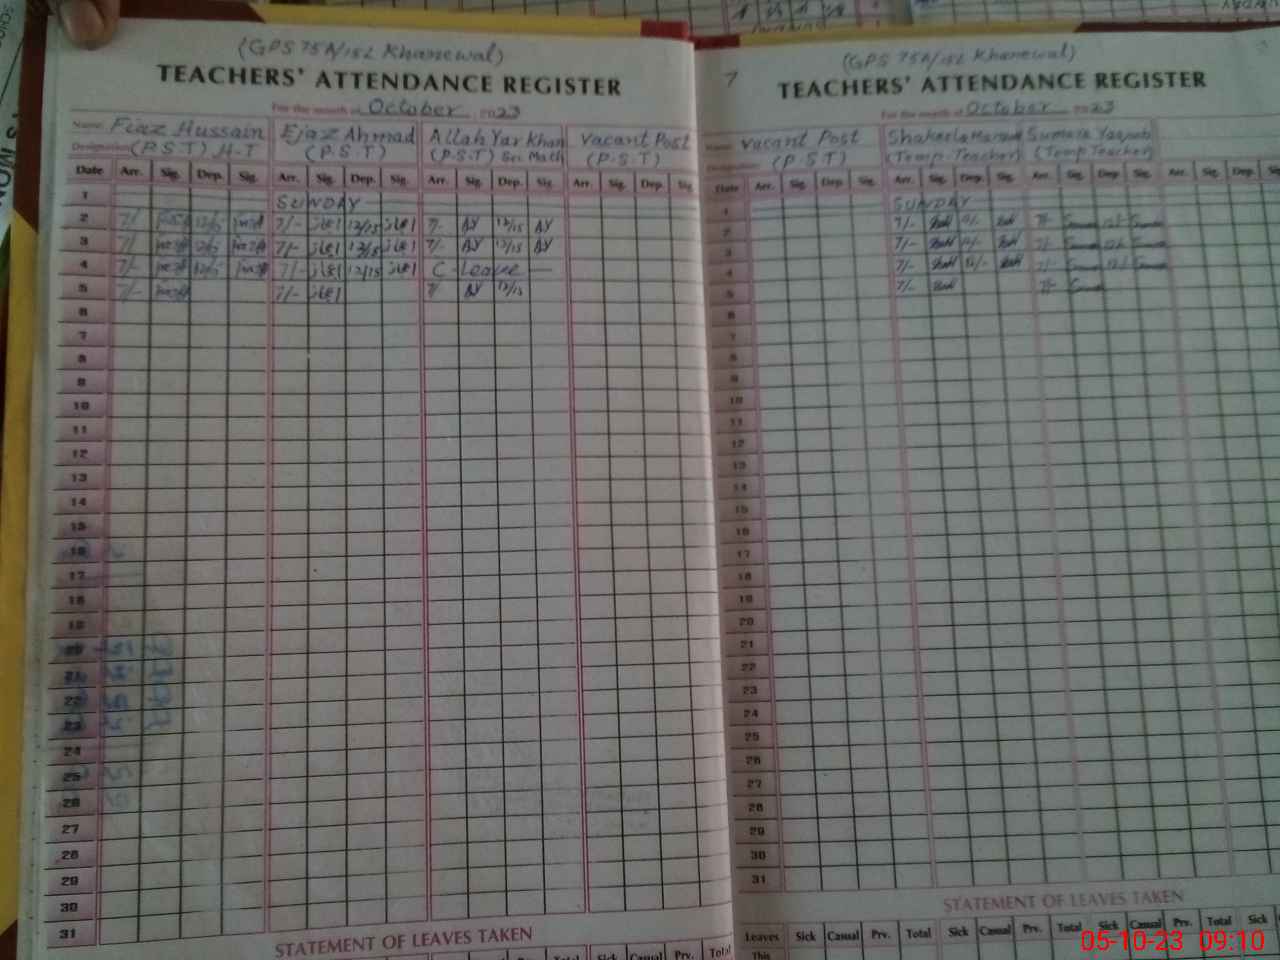 (GPS 75A/15L Khanewal)
TEACHERS' ATTENDANCE REGISTER
For the month of October 2023
Name Fiaz Hussain Ejaz Ahmad Allah Yar Khan Vacant Post
Designation (P.S.T) H-T (P.S.T) (P.S.T) Sci. Math (P.S.T)
Date Arr. Sig. Dep. Sig. Arr. Sig. Dep. Sig. Arr. Sig. Dep. Sig. Arr. Sig. Dep. Sig.
1 SUNDAY
2 7/- 7/- 12/15 7/- AY 12/15 AY
3 7/- 7/- 12/15 7/- AY 12/15 AY
4 7/- 7/- 12/15 C - Leave —
5 7/- 7/- 7/- AY 12/15
6
7
8
9
10
11
12
13
14
15
16
17
18
19
20
21
22
23
24
25
26
27
28
29
30
31
STATEMENT OF LEAVES TAKEN
Sick Casual Prv. Total
7
(GPS 75A/15L Khanewal)
TEACHERS' ATTENDANCE REGISTER
For the month of October 2023
Name Vacant Post Shakeela Sumera Yaqoob
(P.S.T) (Temp. Teacher) (Temp Teacher)
Date Arr. Sig. Dep. Sig. Arr. Sig. Dep. Sig. Arr. Sig. Dep. Sig. Arr. Sig. Dep.
1 SUNDAY
2 7/- 12/- 7/- 12/-
3 7/- 12/- 7/- 12/-
4 7/- 12/- 7/- 12/-
5 7/- 7/-
6
7
8
9
10
11
12
13
14
15
16
17
18
19
20
21
22
23
24
25
26
27
28
29
30
31
STATEMENT OF LEAVES TAKEN
Leaves Sick Casual Prv. Total Sick Casual Prv. Total Sick Casual Prv. Total Sick
This
05-10-23 09:10